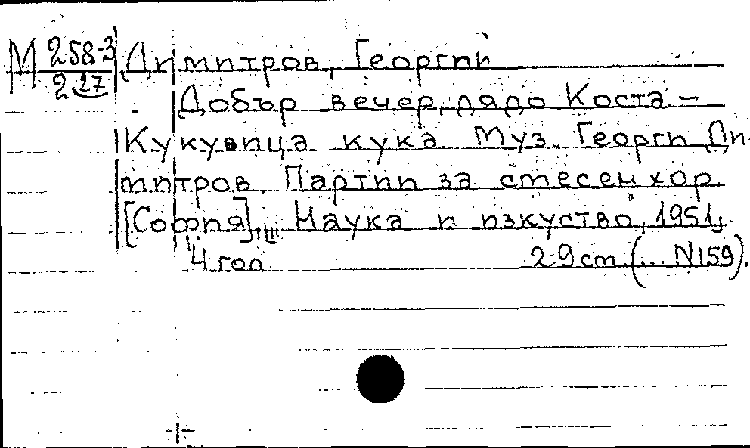 М 258-3 Димитров, Георги
2 27
Добър вечер, дядо Коста –
Кукувица кука Муз. Георги Ди-
митров. Партии за смесен хор.
[София], Наука и изкуство, 1951,
4 гол 29 cm (... N159).